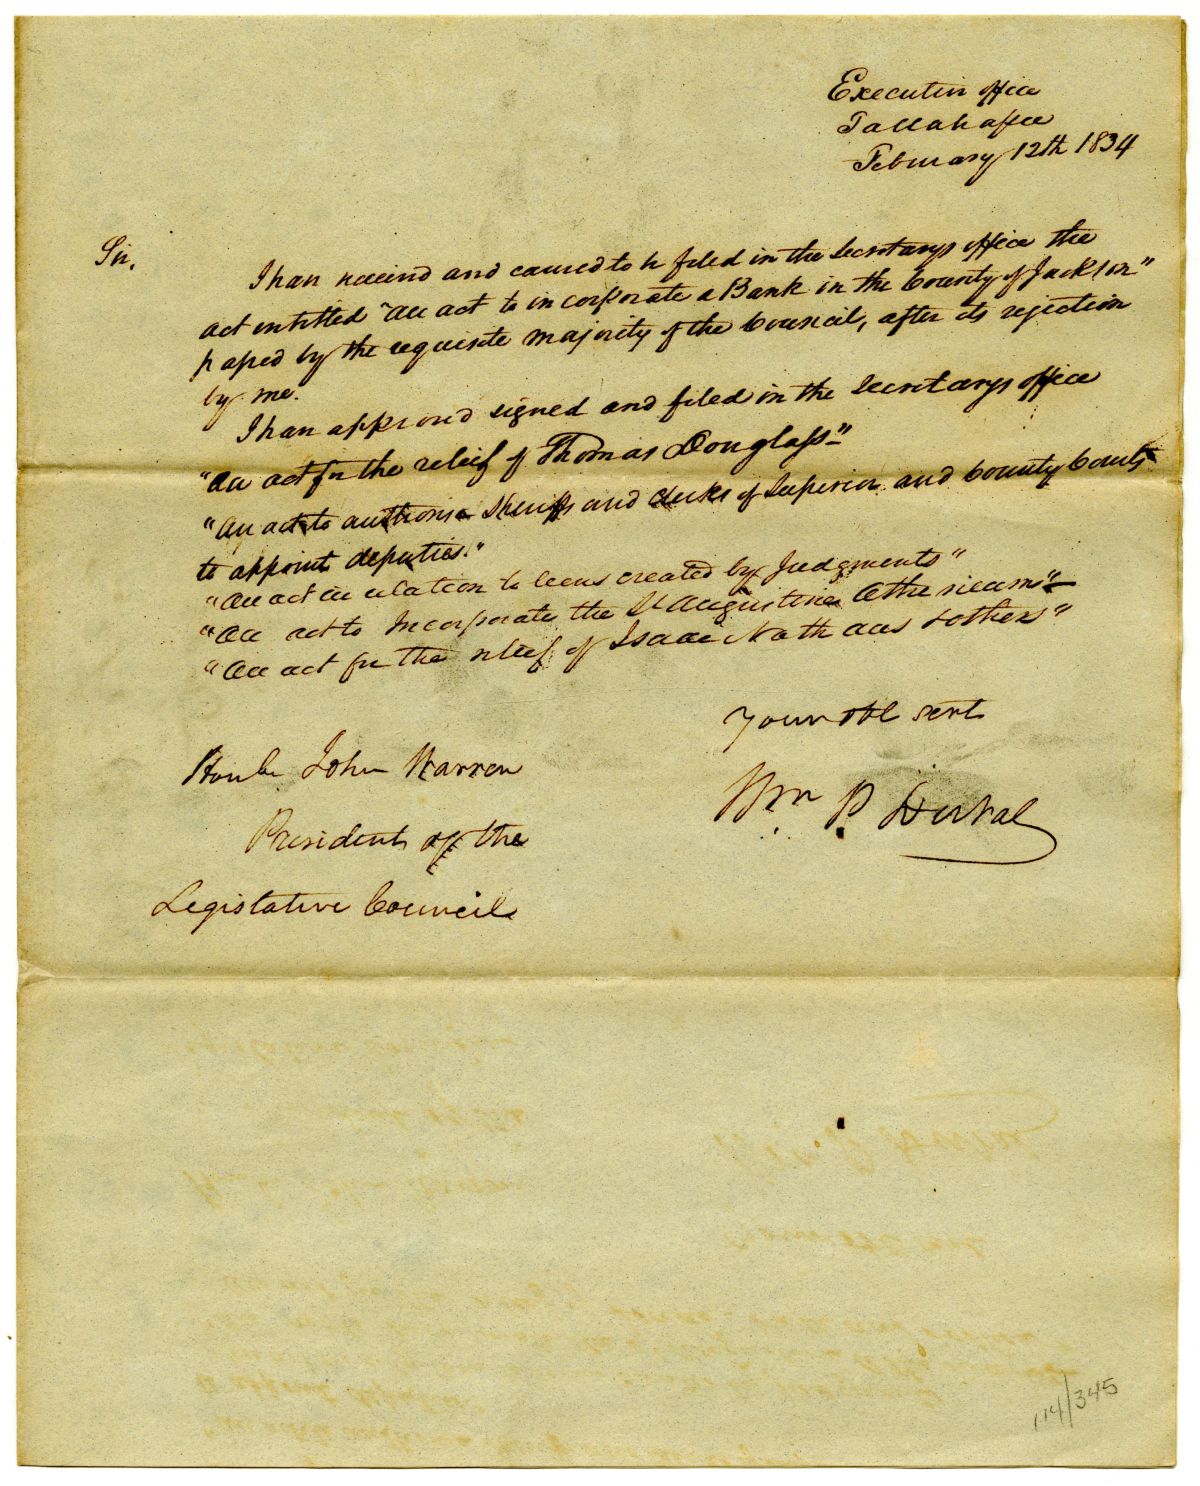 Executive office
Tallahassee
February 12th 1834
Sir,
I have received and caused to be filed in the Secretarys office the
act entitled "An act to incorporate a Bank in the County of Jackson"
passed by the requisite majority of the Council, after its rejection
by me.
I have approved signed and filed in the Secretarys office
"An act for the relief of Thomas Douglass"
"An act to authorise Sheriffs and clerks of Superior and County Courts
to appoint deputies."
"An act in relation to liens created by Judgments"
"An act to Incorporate the St Augustine Atheneum"
"An act for the relief of Isaac Nathans & others"
Your Obt servt
Wm P. DuVal
Honble John Warren
President of the
Legislative Council
114/345